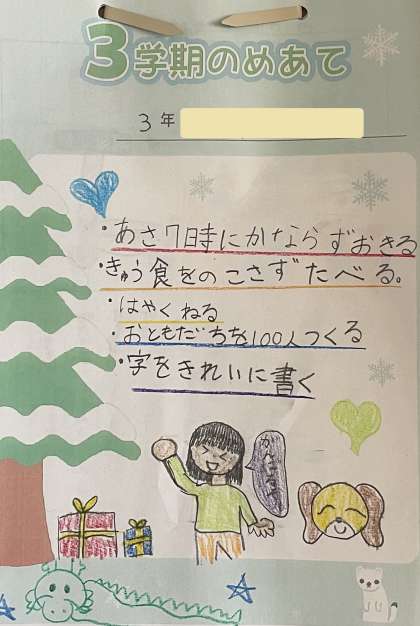 3学期のめあて
3年
・あさ7日時にかならずおきる
・きゅう食をのこさずたべる。
・はやくねる
・おともだちを100人つくる
・字をきれいに書く